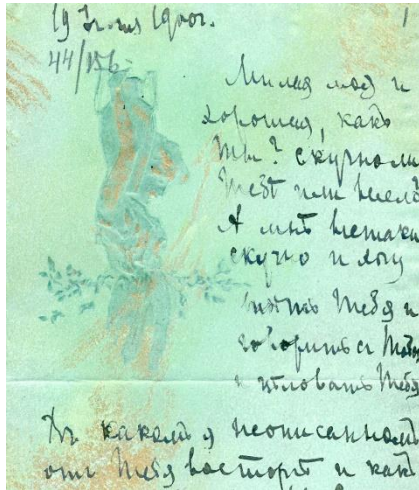 19 Июля 1900г. 1
44/156
Милая моя и
хорошая, какъ
Ты? скучно ли
Тебѣ или весело
А мнѣ всетаки
скучно и хочу
видѣть Тебя и
говорить съ Тобой
и цѣловать Тебя
Въ какомъ я неописанномъ
отъ Тебя восторгѣ и какъ